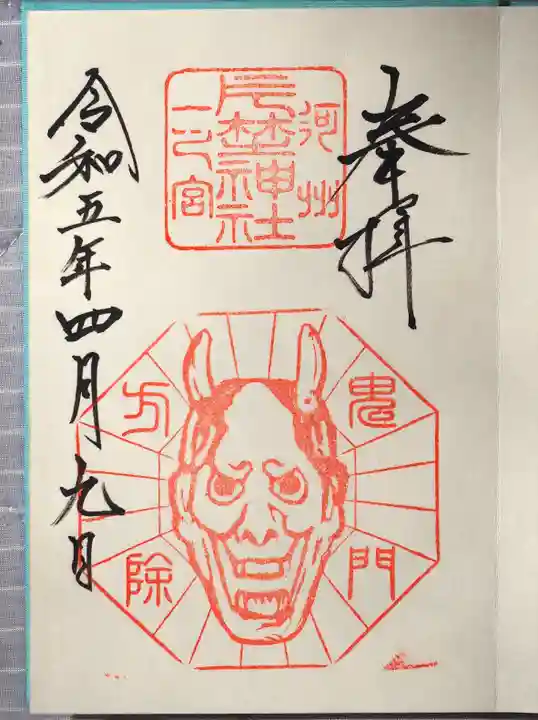 奉拝
河州
片埜神社
一ノ宮
鬼門
方除
令和五年四月九日